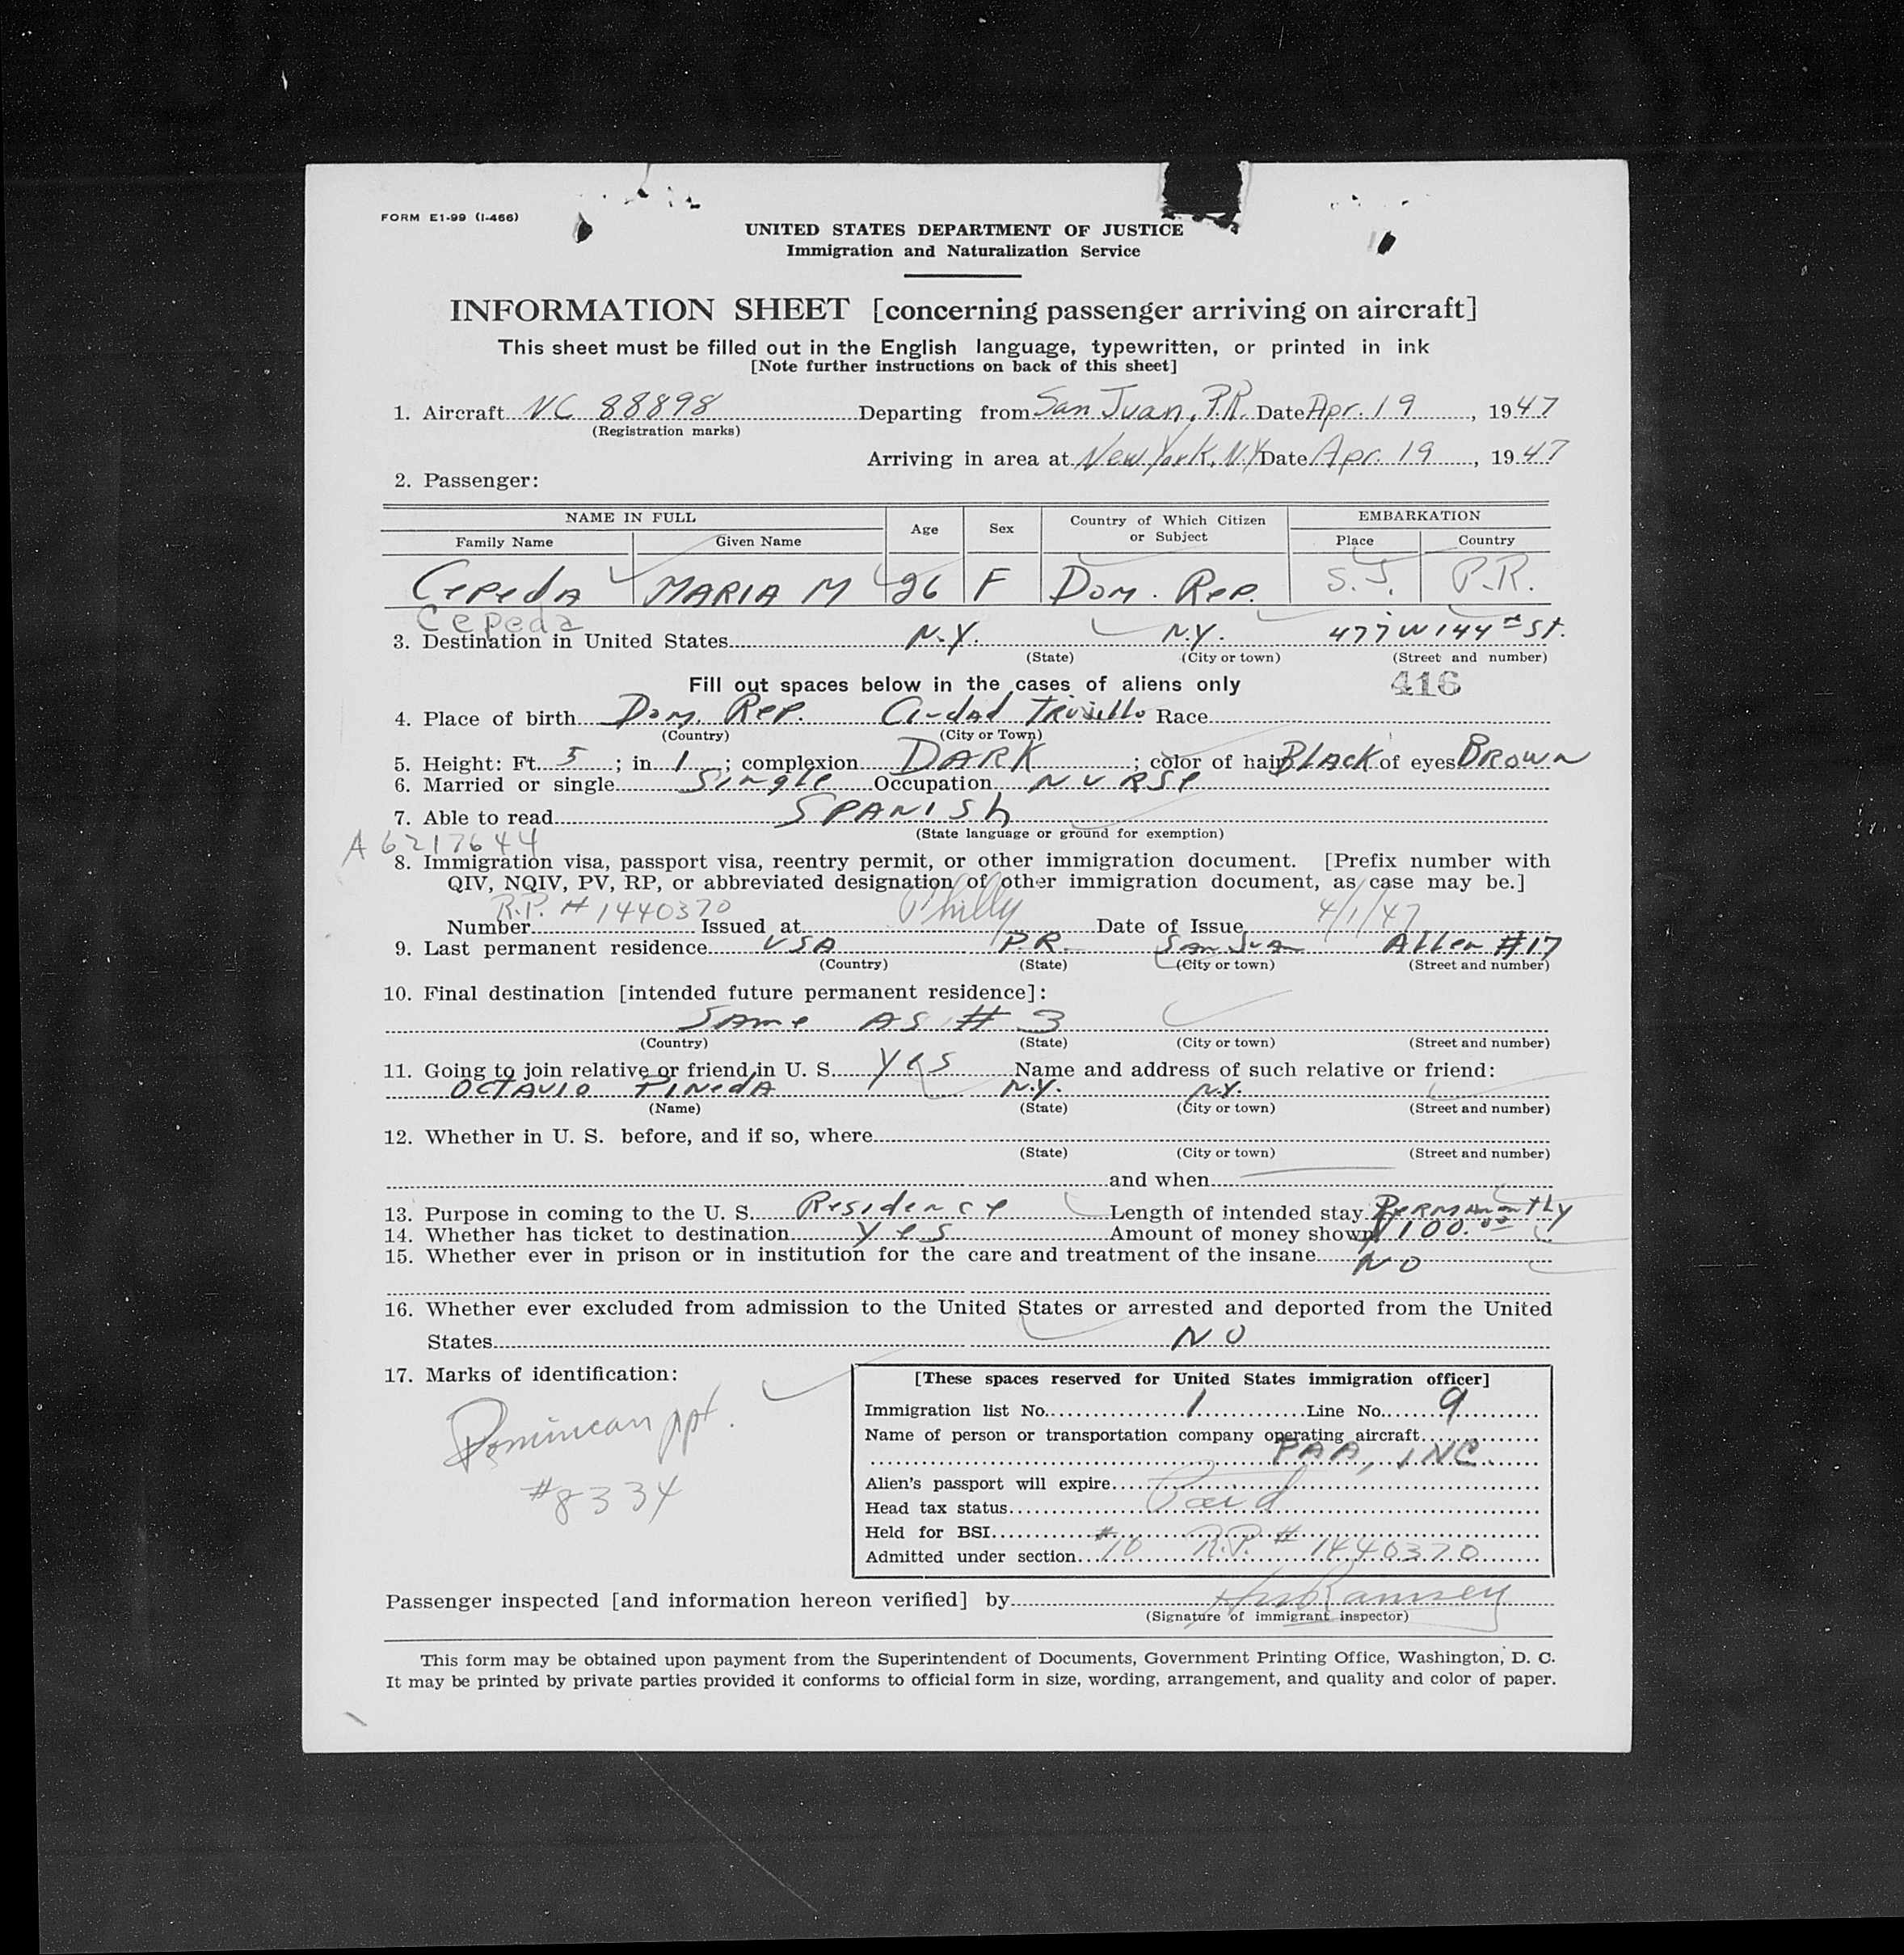 FORM E1-99 (I-466)
UNITED STATES DEPARTMENT OF JUSTICE
Immigration and Naturalization Service
INFORMATION SHEET [concerning passenger arriving on aircraft]
This sheet must be filled out in the English language, typewritten, or printed in ink
[Note further instructions on back of this sheet]
1. Aircraft NC 88898 Departing from San Juan, P.R. Date Apr. 19, 1947
(Registration marks)
Arriving in area at New York, N.Y. Date Apr. 19, 1947
2. Passenger:
NAME IN FULL Age Sex Country of Which Citizen or Subject EMBARKATION
Family Name Given Name Place Country
CepedA MARIA M 26 F Dom. Rep. S.J. P.R.
Cepeda
3. Destination in United States N.Y. N.Y. 477 W 144th St.
(State) (City or town) (Street and number)
Fill out spaces below in the cases of aliens only 416
4. Place of birth Dom. Rep. Ciudad Trujillo Race
(Country) (City or Town)
5. Height: Ft. 5; in 1; complexion DARK; color of hair BLAck of eyes BROWN
6. Married or single Single Occupation NURSe
7. Able to read SPANISh
(State language or ground for exemption)
A6217644
8. Immigration visa, passport visa, reentry permit, or other immigration document. [Prefix number with
QIV, NQIV, PV, RP, or abbreviated designation of other immigration document, as case may be.]
Number R.P. # 1440370 Issued at Philly Date of Issue 4/1/47
9. Last permanent residence USA P.R. SAN JUAN Allen #17
(Country) (State) (City or town) (Street and number)
10. Final destination [intended future permanent residence]:
SAme AS # 3
(Country) (State) (City or town) (Street and number)
11. Going to join relative or friend in U. S. Yes Name and address of such relative or friend:
OCTAVIO PINedA N.Y. N.Y.
(Name) (State) (City or town) (Street and number)
12. Whether in U. S. before, and if so, where
(State) (City or town) (Street and number)
and when
13. Purpose in coming to the U. S. Residence Length of intended stay Permanently
14. Whether has ticket to destination Yes Amount of money shown $100.00
15. Whether ever in prison or in institution for the care and treatment of the insane NO
16. Whether ever excluded from admission to the United States or arrested and deported from the United
States NO
17. Marks of identification:
Dominican ppt.
#8334
[These spaces reserved for United States immigration officer]
Immigration list No. 1 Line No. 9
Name of person or transportation company operating aircraft
PAA, INC.
Alien's passport will expire
Head tax status Paid
Held for BSI
Admitted under section #10 R.P. # 1440370
Passenger inspected [and information hereon verified] by Ramsey
(Signature of immigrant inspector)
This form may be obtained upon payment from the Superintendent of Documents, Government Printing Office, Washington, D. C.
It may be printed by private parties provided it conforms to official form in size, wording, arrangement, and quality and color of paper.